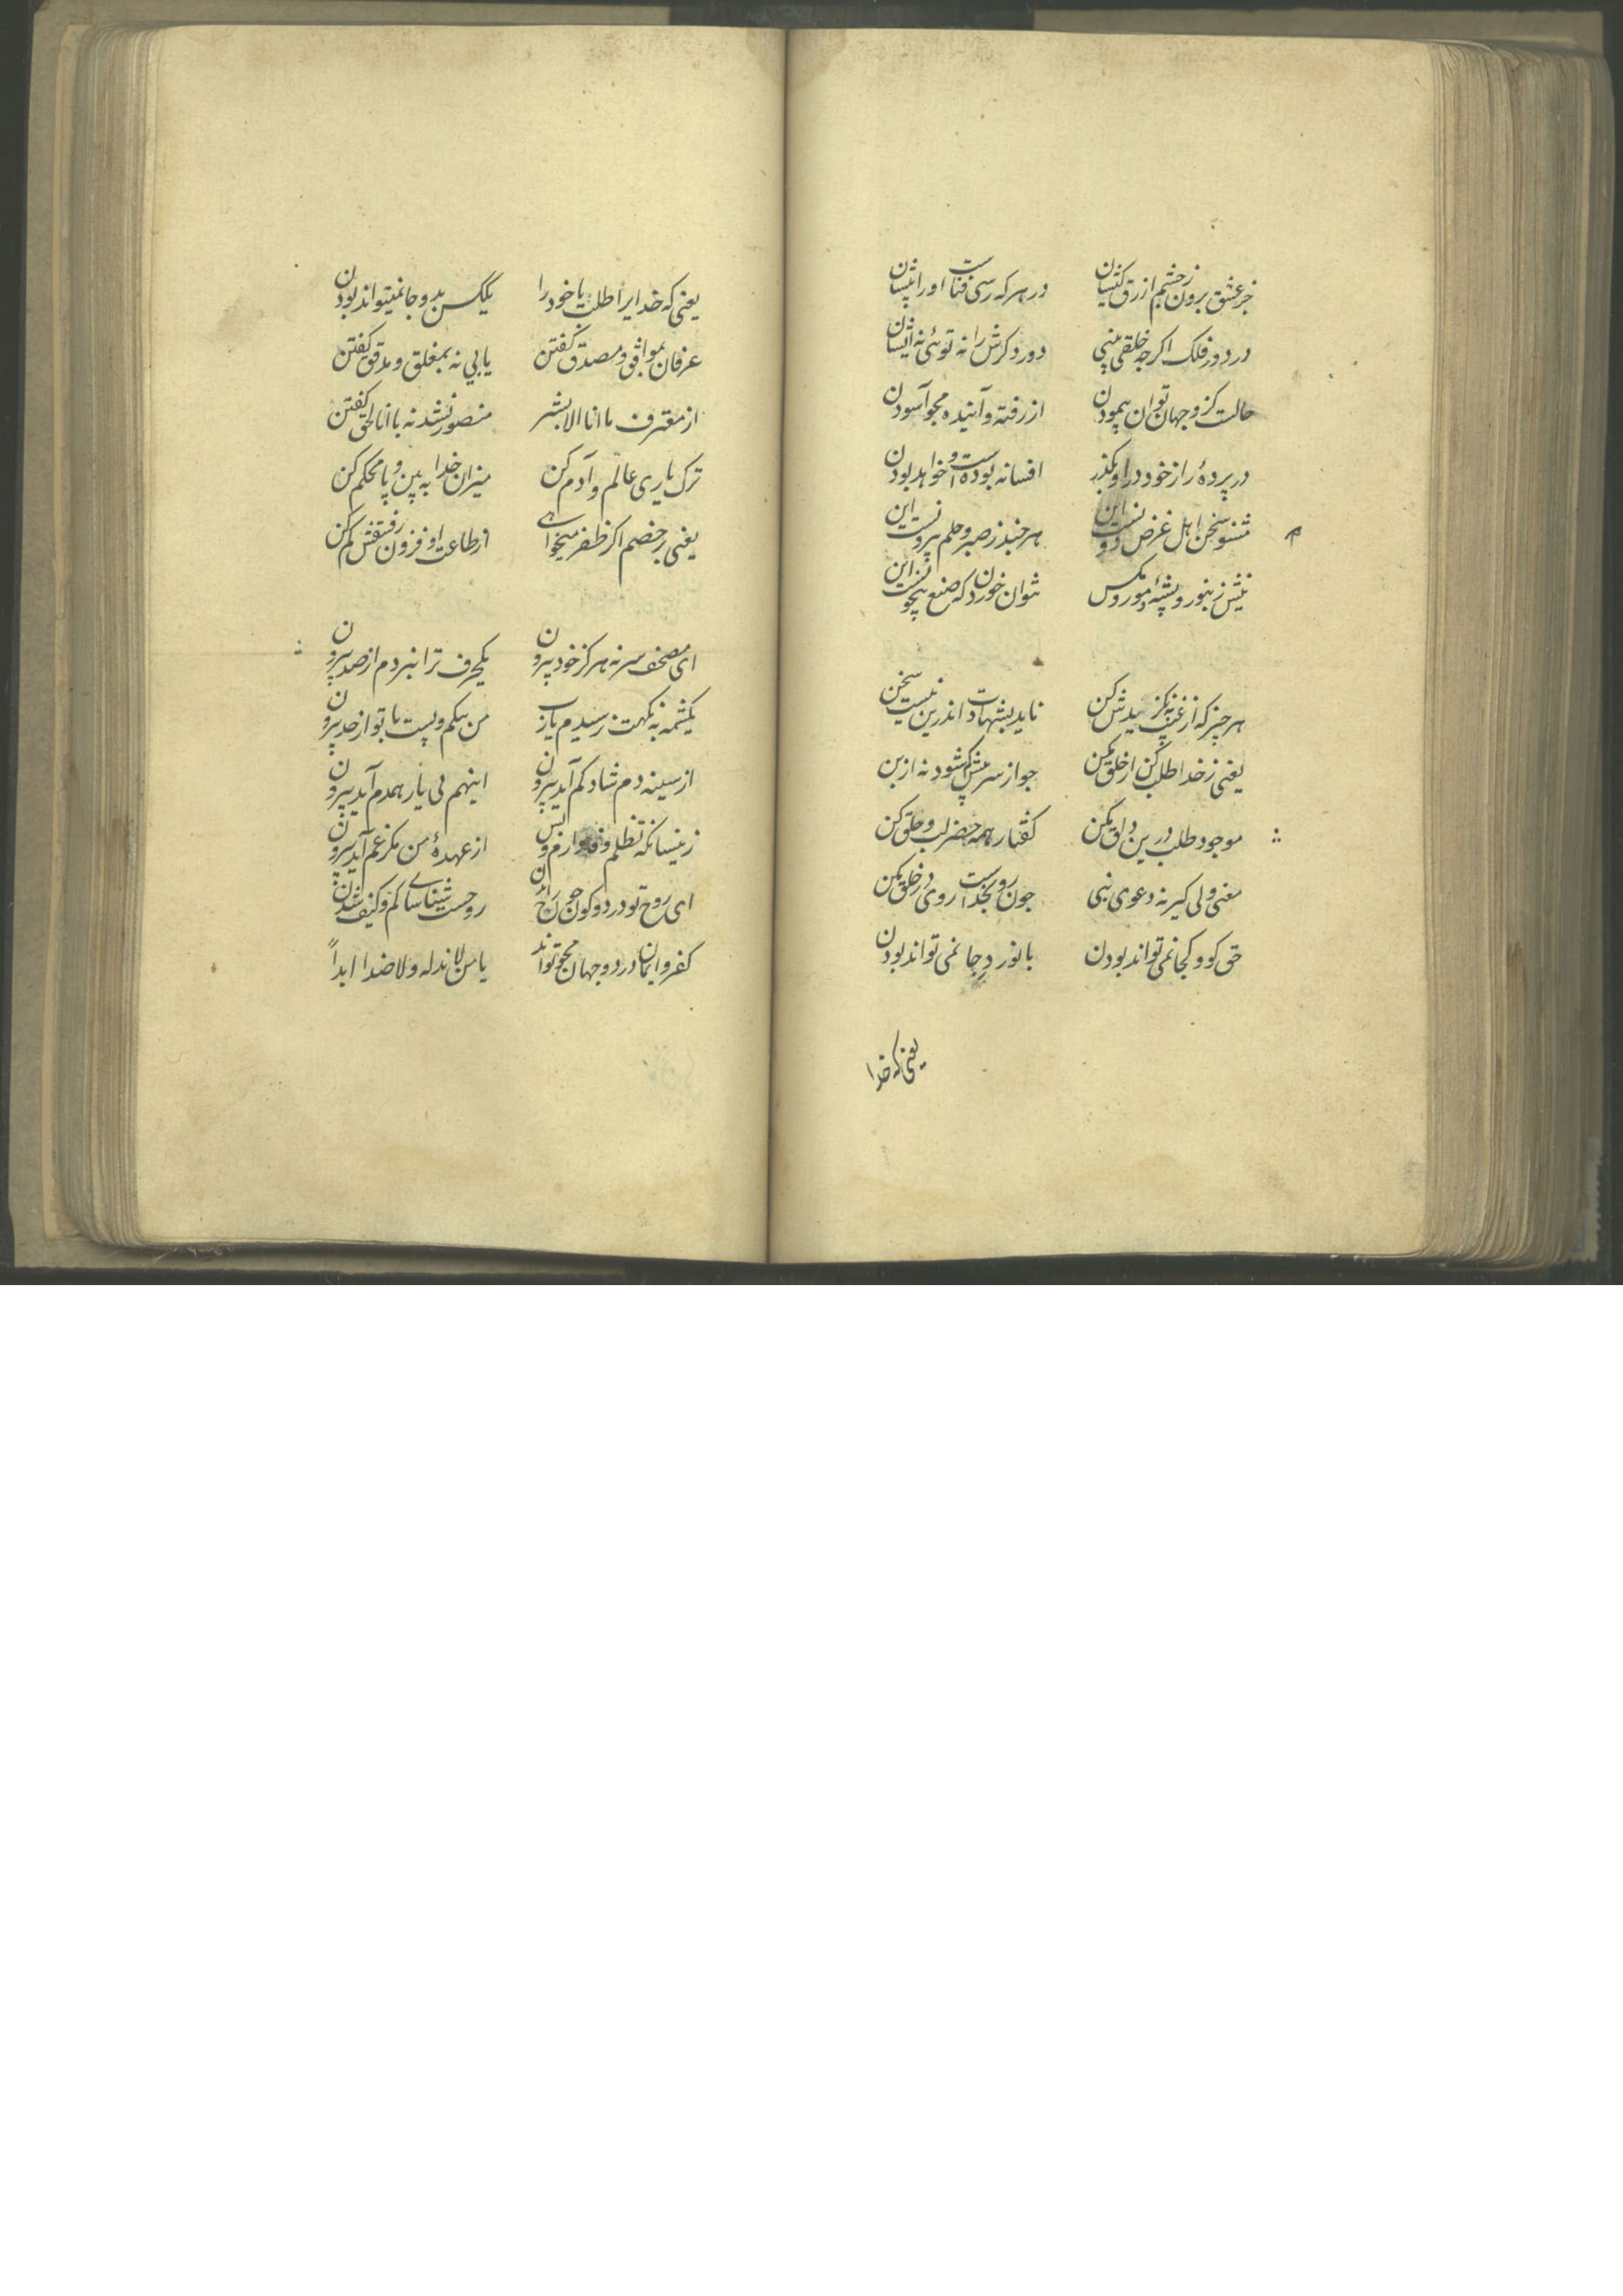 جز عشق برون ز چشم ازرق کیشان در هر که رسی فناست او را پیشان
در دور فلک اگرچه خلقی بینی دور دگرش را نه توئی نه ایشان
حالت کز و جهان توان پیمودن از رفته و آینده مجو آسودن
در پردهٔ راز خود درا و بگذر افسانه بوده است و خواهد بودن
مشنو سخن اهل غرض دو نیست این هر چند ز صبر و حلم بیرونست این
نیش زنبور و پشه و مور و مگس نتوان خوردن که صنع بیچونست این
هر چیز که از غیب پدیدش کن ناید بشهادت اندرین نیست سخن
یعنی ز خدا طلب کن از خلق مکن جو از سر پیش شود نه از بن
موجود طلب درین دلق مکن گفتار همه حضر لب و حلق مکن
معنی ولی گیر نه دعوی نبی چون رو بخداست روی در خلق مکن
حق کو و کجا نمی تواند بودن با نور دجا نمی تواند بودن
یعنی که خدا
یعنی که خدایرا طلب یا خود را یکس بدو جا نمیتواند بودن
عرفان بموافق و مصدق گفتن یابی نه بمغلق و مدقق گفتن
از معترف ما انا الا بشر منصور نشد نه با انا الحق گفتن
ترک یاری عالم و آدم کن میزان خدا به بین و پا محکم کن
یعنی بر خصم اگر ظفر میخواهی از طاعت او فزون ز فسقش کم کن
ای مصحف سر نه هرگز خود بیرون یکحرف ترا نبردم از صد بیرون
یکشمه به نکهت نرسیدم یا رب من بیکم و بیست با تو از حد بیرون
از سینه دم شاد کم آید بیرون اینهم بی یار همدم آید بیرون
زینسانکه تظلم و از عهدهٔ من مگر غم آید بیرون
ای روح تو در دو کون چون روحست شناسای کم و کیف شدن
کفر و ایمان در دو جهان محو تواند یا من لا ند له ولا ضد ابداً